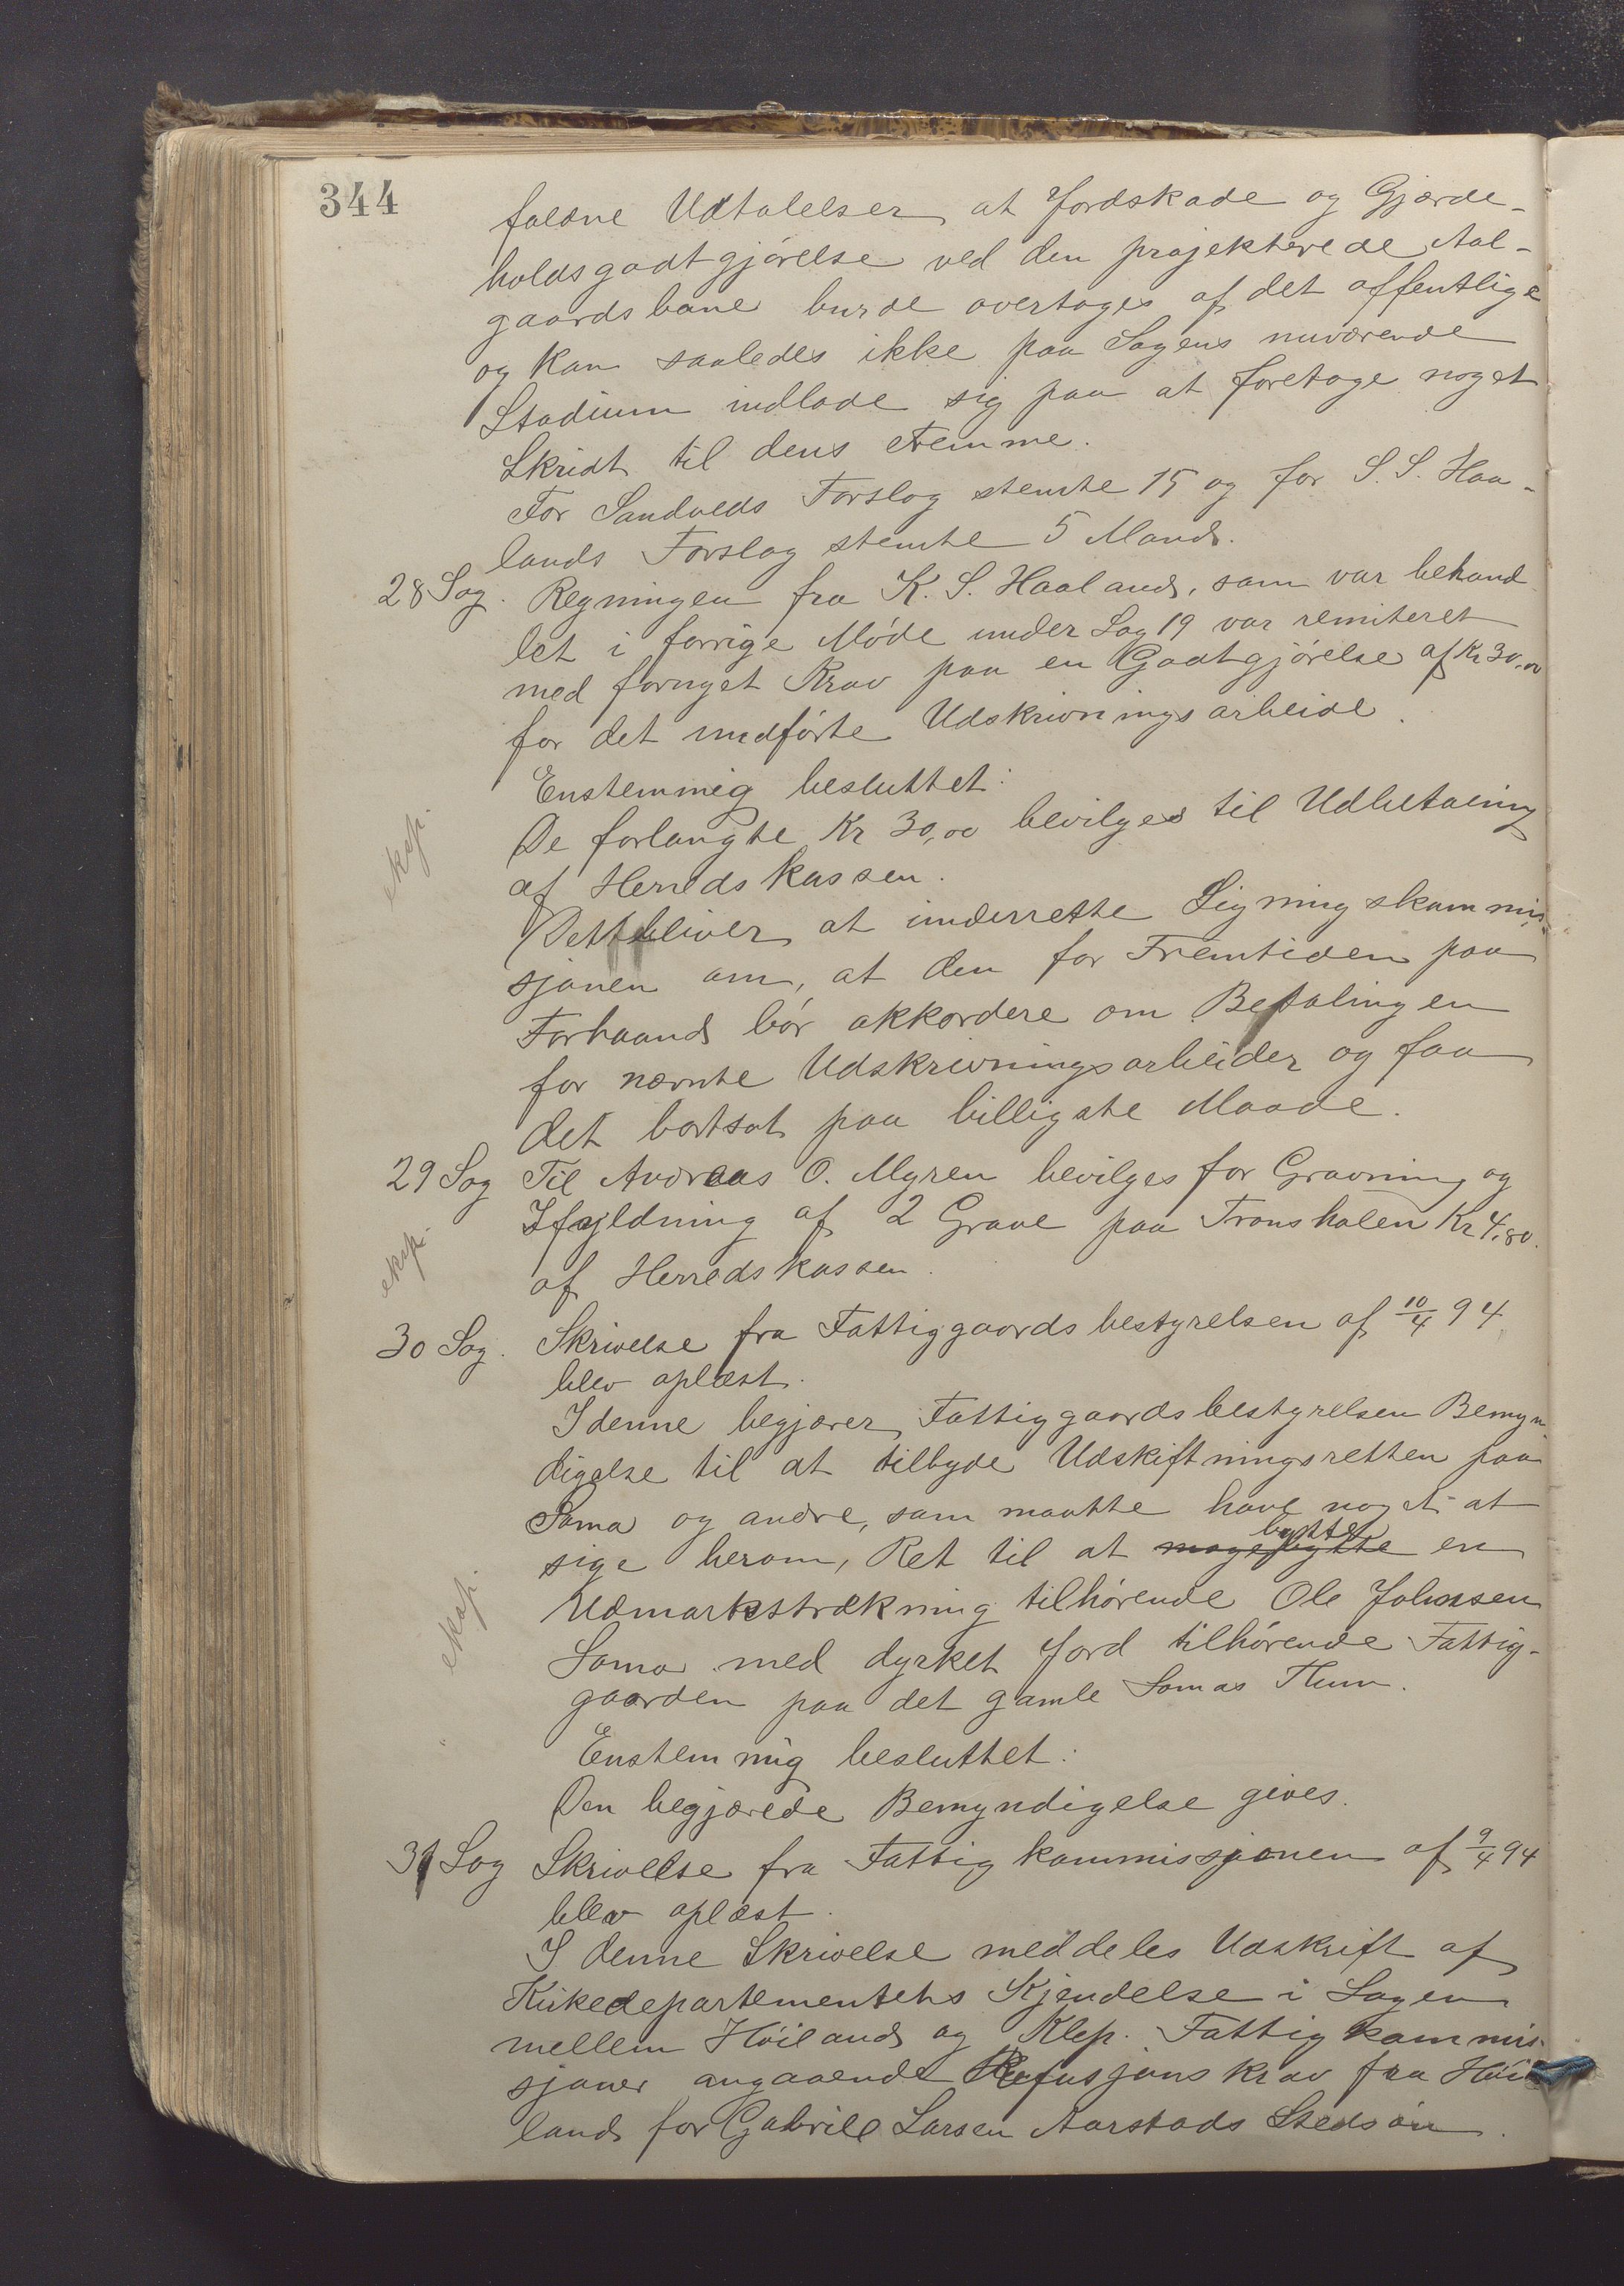 344
faldne Udtalelser at Jordskade og Gjærde-
holdsgodtgjörelse ved den projekterede Aal-
gaardsbane burde overtages af det offentlige
og kan saaledes ikke paa Sagens nuværende
Stadium indlade sig paa at foretage noget
Skridt til dens Fremme.
For Sandveds Forslag stemte 15 og for S. S. Haa-
lands Forslag stemte 5 Mand.
28 Sag. Regningen fra K. S. Haaland, som var behand
let i forrige Möde under Sag 19 var remiteret
med fornyet Krav paa en Godtgjörelse af Kr 30,00
for det undförte Udskrivningsarbeide.
Enstemmig besluttet:
De forlangte Kr 30,00 bevilges til Udbetaling
eksp.
af Herredskassen.
Dette bliver at underrette Ligningskommis-
sjonen om, at den for Fremtiden paa
Forhaand bör akkordere om Betalingen
for nævnte Udskrivningsarbeider og faa
det bortsat paa billigste Maade.
29 Sag Til Andreas O. Myren bevilges for Gravning og
Ifyldning af 2 Grave paa Fronsholen Kr 4,80.
eksp.
af Herredskassen.
30 Sag. Skrivelse fra Fattiggaardsbestyrelsen af 10/4 94
blev oplæst.
I denne begjærer Fattiggaardsbestyrelsen Bemyn
digelse til at tilbyde Udskiftningsretten paa
Soma og andre, som maatte have noget at
sige herom, Ret til at magebytte bytte en
Udmarkstrækning tilhörende Ole Johnsen
eksp.
Soma med dyrket Jord tilhörende Fattig-
gaarden paa det gamle Somas Thun.
Enstemmig besluttet:
Den begjærede Bemyndigelse gives.
31 Sag Skrivelse fra Fattigkommissjonen af 9/4 94
blev oplæst.
I denne Skrivelse meddeles Udskrift af
Kirkedepartementets Kjendelse i Sagen
mellem Höiland og Klep. Fattigkommis-
sjoner angaaende Refusjonskrav fra Höi
land for Gabriel Larsen Aarstads Stedsön.